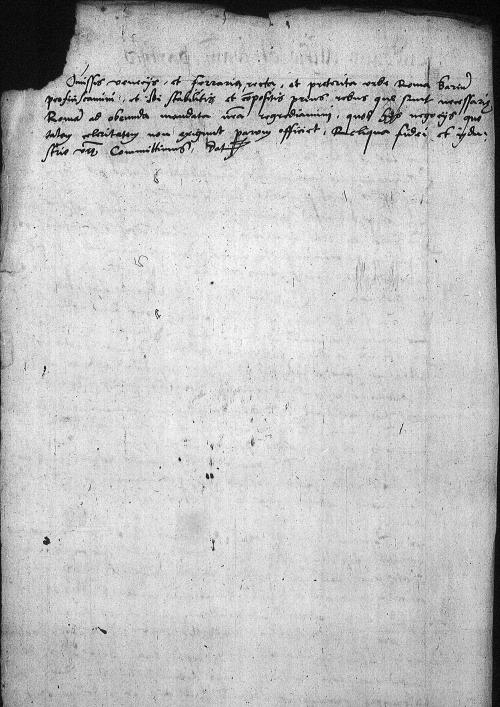 Omissis venecijs, et ferraria, recta, et preterita urbe Roma barium
proficiscamini, et ibi stabilitis et compositis prius rebus que sunt necessarie
Romam ad obeunda mandata nra regrediamini, quod negocijs que
tatam celeritatem non exigunt parum officiet, Reliqua fidei et indu-
strie vre Committimus, Dat